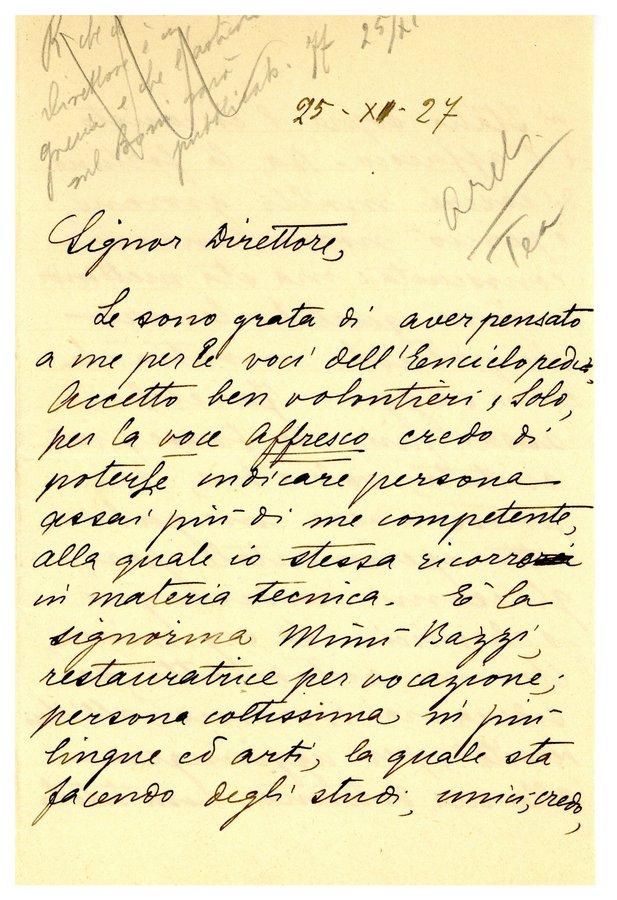 R. che il
Direttore è in
grecia e che l'articolo
sul Boni sarà
pubblicato. ff 25/XI
25-XI-27
Arch.
Tea
Signor Direttore,
Le sono grata di aver pensato
a me per le voci dell'Enciclopedia,
Accetto ben volontieri, Solo,
per la voce Affresco credo di
poterLe indicare persona
assai più di me competente,
alla quale io stessa ricorro
in materia tecnica. È la
signorina Mimì Bazzi,
restauratrice per vocazione;
persona coltissima in più
lingue ed arti, la quale sta
facendo degli studi, unici, credo,